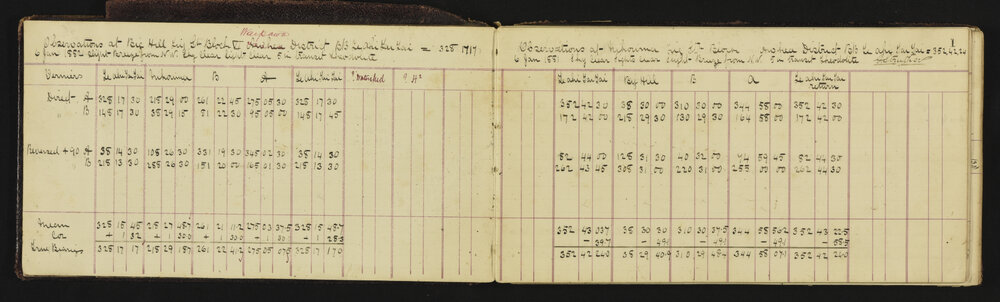 Waipawa
Observations at Big Hill Trig St Block District B/S Te Ahi Tai Tai = 328 17 17
6 Jan 1882 Light Breeze from N.W. Sky clear light clear 5 in Transit Theodolite
Verniers Te Ahi Tai Tai B A Te Ahi Tai Tai
Direct A 328 17 30 215 29 00 261 22 45 275 05 30 328 17 30
B 148 17 30 35 29 15 81 22 30 95 05 00 148 17 45
Reversed + 90 A 38 14 30 105 26 30 331 19 30 345 02 30 38 14 30
B 218 13 30 285 26 30 151 20 00 165 01 30 218 13 30
Mean 328 15 45 215 27 48.7 261 21 11.2 275 03 37.5 328 15 48.7
Cor + 1 32 + 1 30.0 + 1 30.0 + 1 30 + 1 28.3
True Bearing 328 17 17 215 29 18.7 261 22 41.2 275 05 07.5 328 17 17.0
Observations at Trig St Block District B/S Te Ahi Tai Tai = 352 42 24
6 Jan 1881 Sky clear light clear Light Breeze from N.W. 5 in Transit Theodolite
Te Ahi Tai Tai Big Hill B A Te Ahi Tai Tai
return
352 42 30 35 30 00 310 30 00 344 58 00 352 42 30
172 42 00 215 29 30 130 29 30 164 58 00 172 42 00
82 44 00 125 31 30 40 32 00 74 59 45 82 44 30
262 43 45 305 31 00 220 31 00 255 00 00 262 44 30
352 43 03.7 35 30 30 310 30 37.5 344 58 56.2 352 43 22.5
- 39.7 - 49.1 - 49.1 - 49.1 - 58.5
352 42 24.0 35 29 40.9 310 29 48.4 344 58 07.1 352 42 24.0